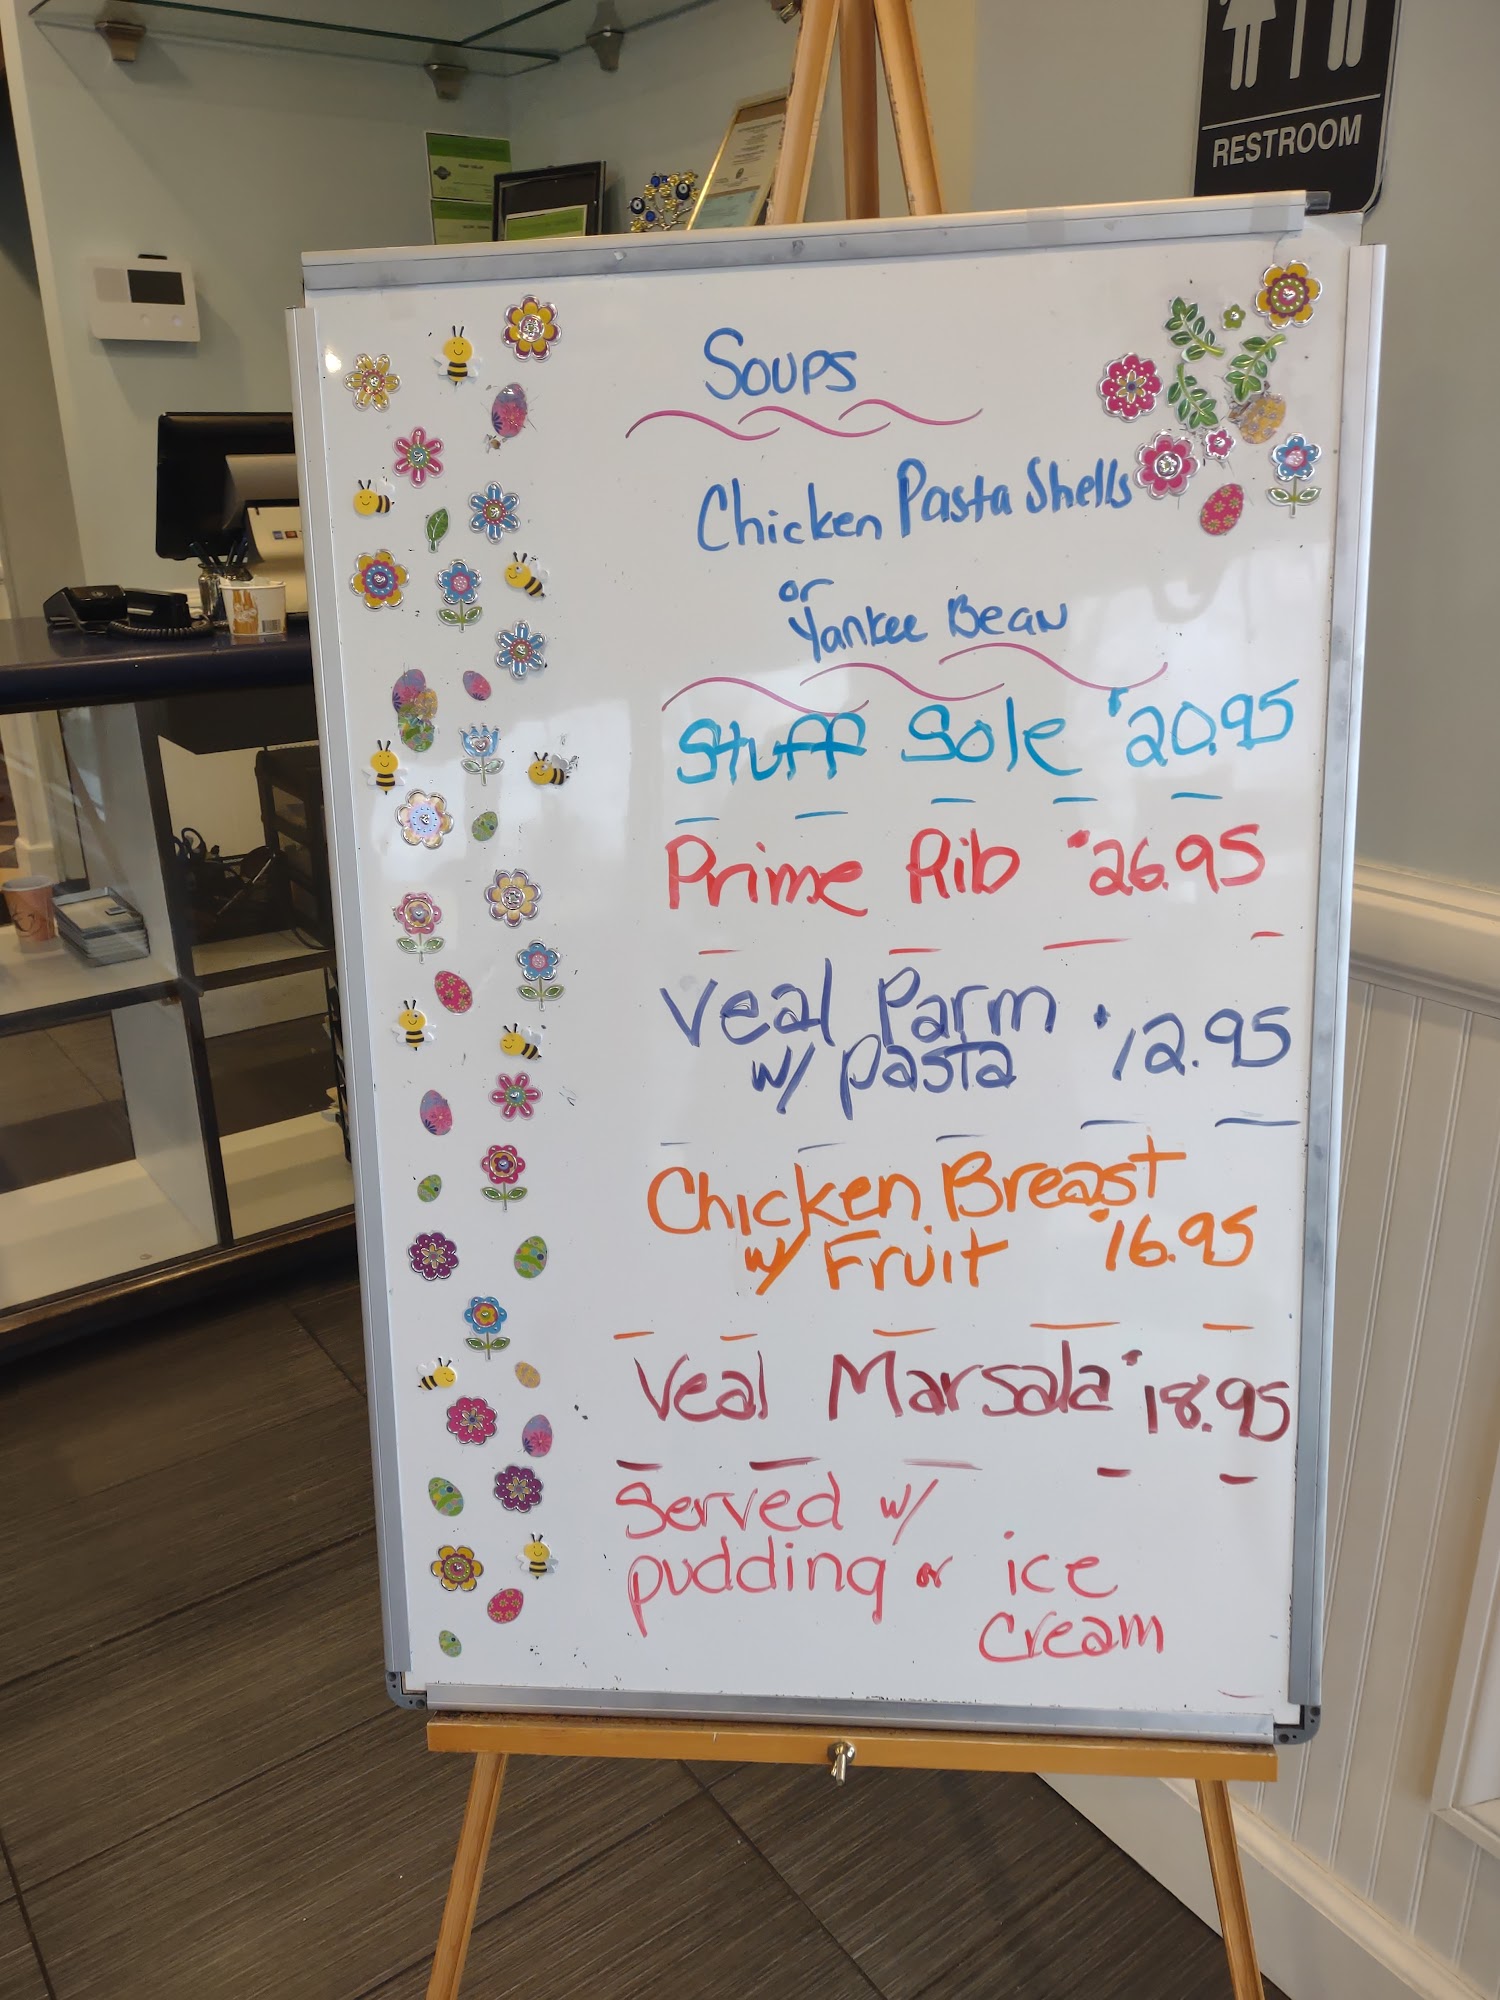 RESTROOM
Soups
Chicken Pasta Shells
or
Yankee Bean
Stuff Sole $20.95
Prime Rib $26.95
Veal Parm
w/ pasta $12.95
Chicken Breast
w/ Fruit $16.95
Veal Marsala $18.95
Served w/
pudding or ice
cream